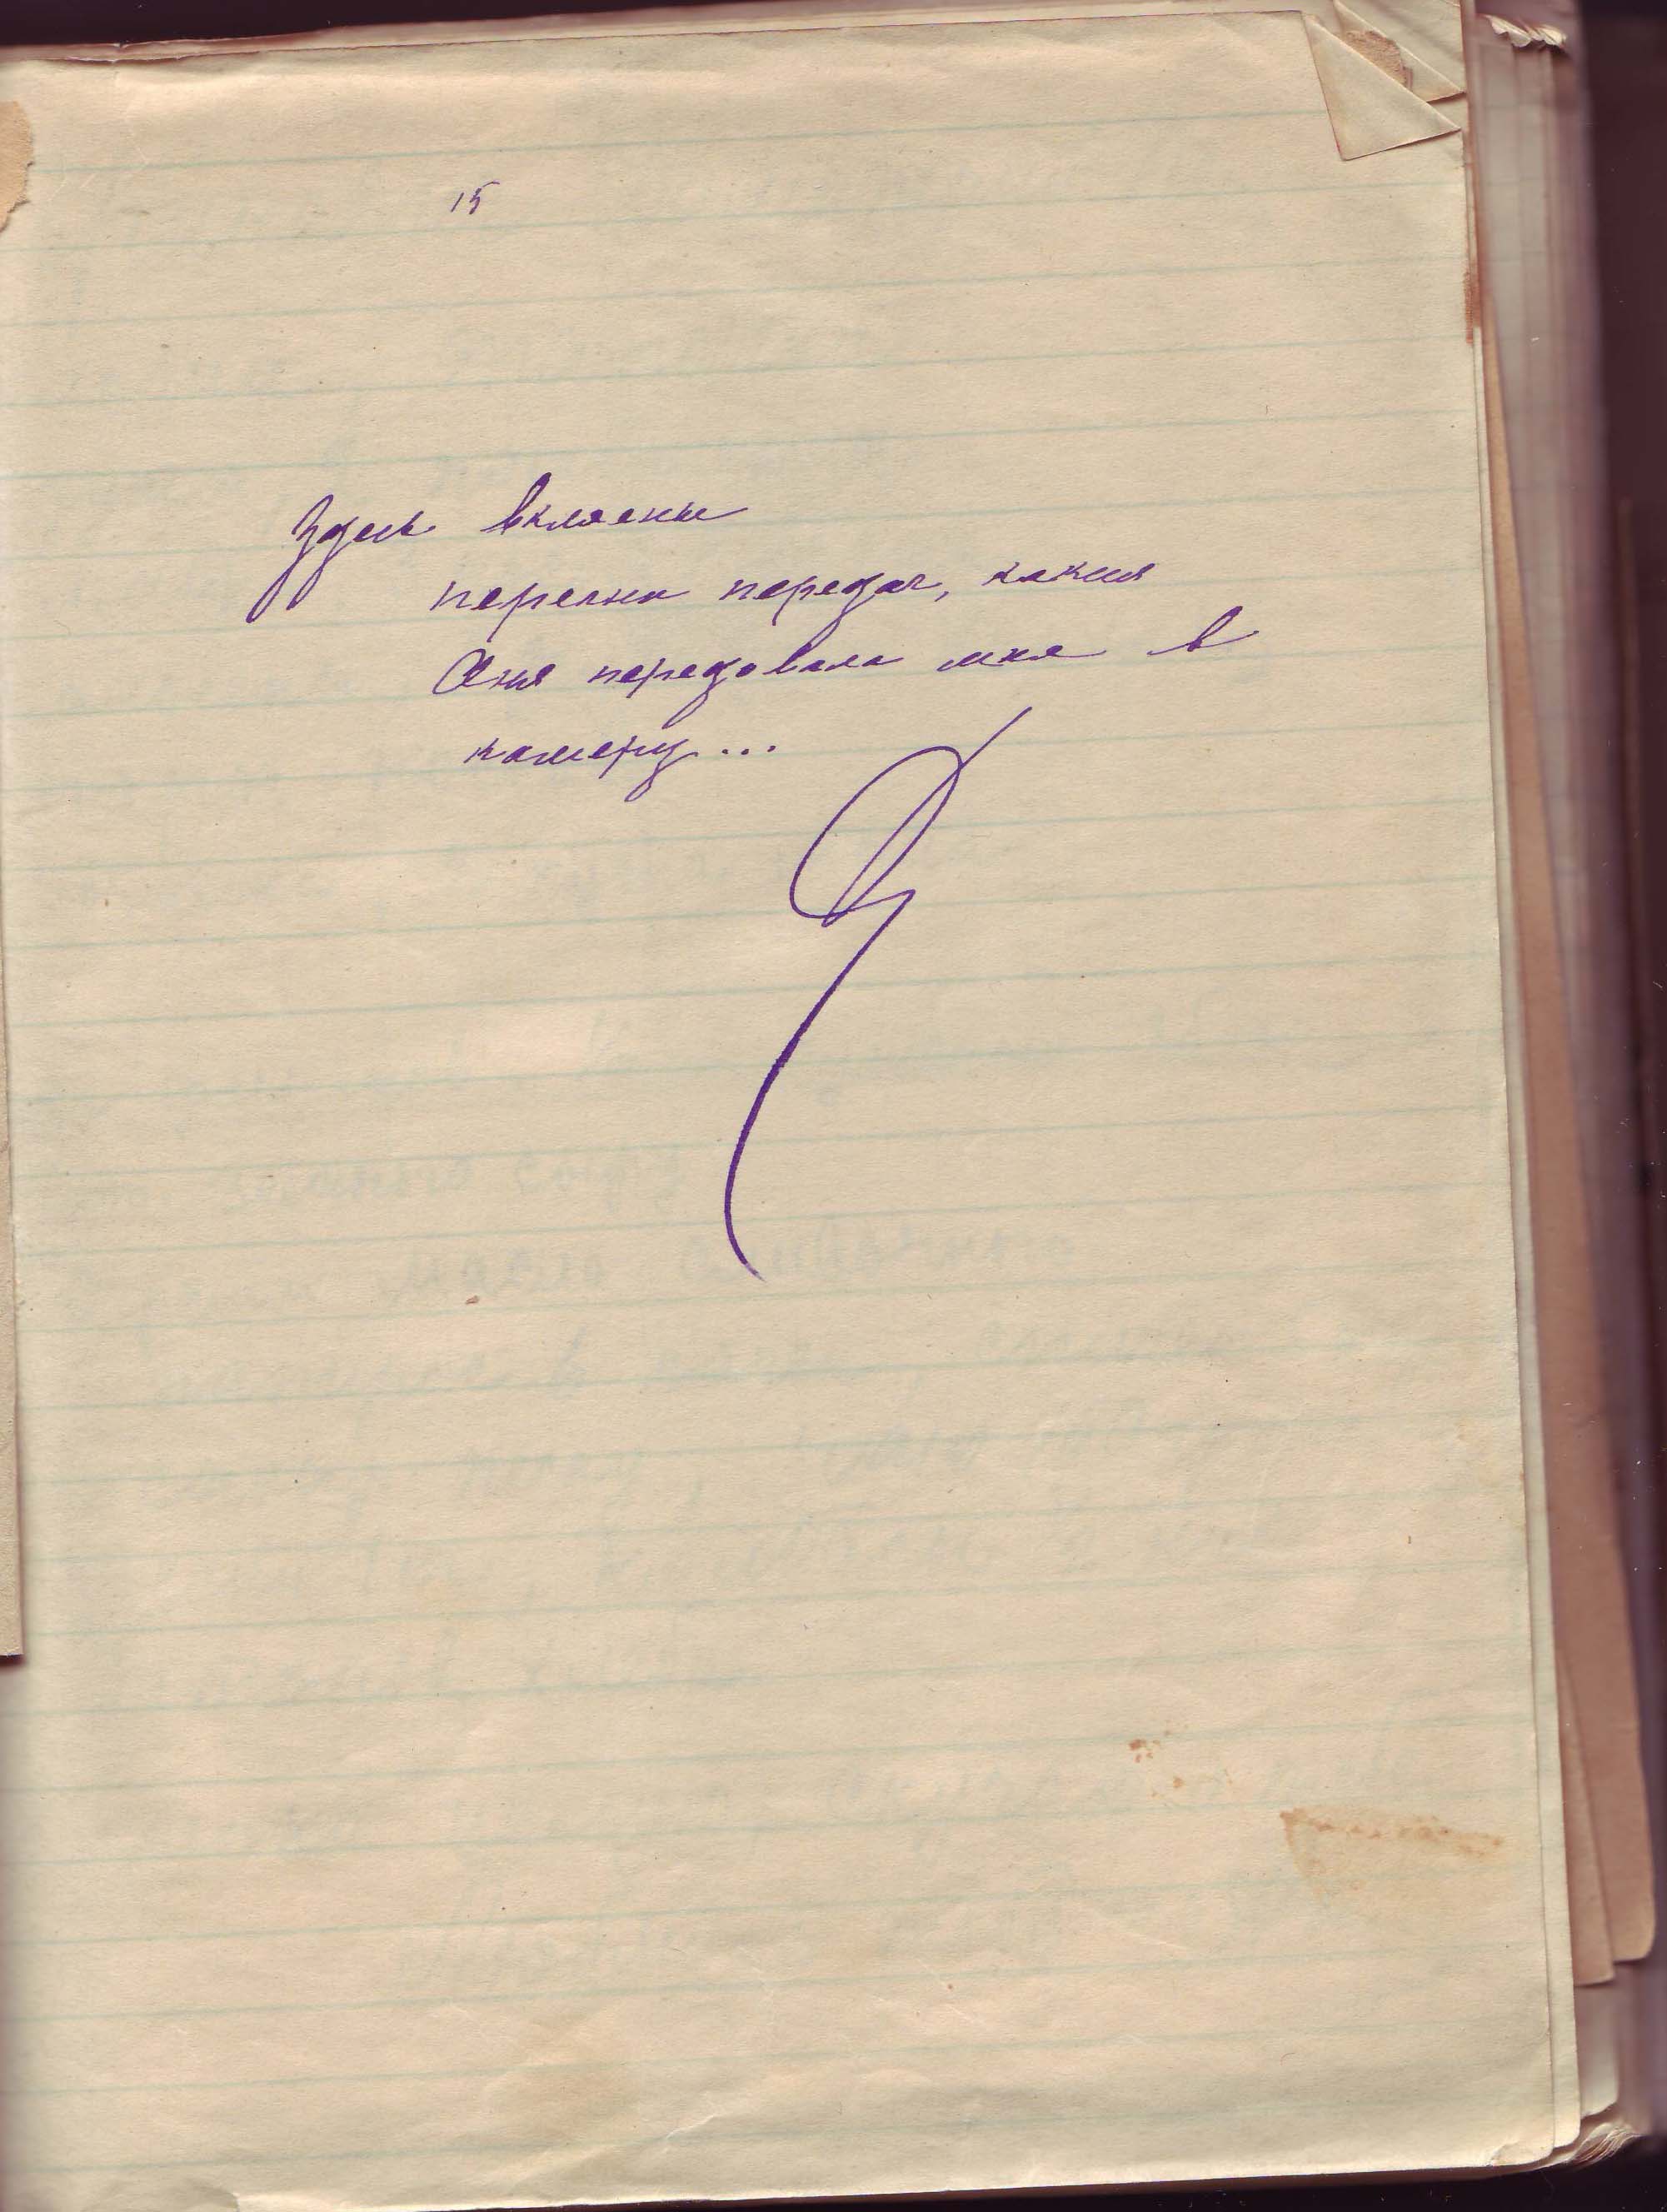 15
Здесь вклеены
перечни передач, какие
Аня передовала мне в
камеру...